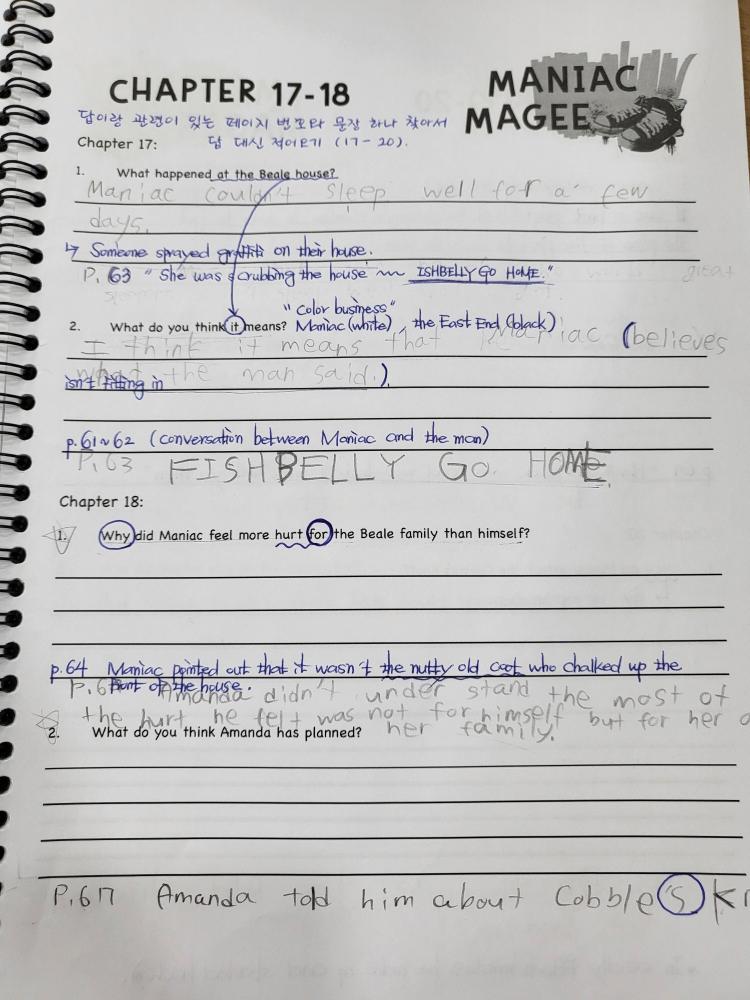 CHAPTER 17-18
MANIAC
MAGEE
답이랑 관련이 있는 페이지 번호와 문장 하나 찾아서
답 대신 적어오기 (17-20).
Chapter 17:
1. What happened at the Beale house?
Maniac couldn't sleep well for a few
days.
↳ Someone sprayed graffiti on their house.
P. 63 "She was scrubbing the house ~ ISHBELLY GO HOME."
"Color business"
2. What do you think it means? Maniac (white), the East End (black)
I think it means that Maniac (believes
what the man said.)
isn't fitting in
p.61~62 (conversation between Maniac and the man)
P.63 FISHBELLY GO HOME
Chapter 18:
1. Why did Maniac feel more hurt for the Beale family than himself?
p.64 Maniac pointed out that it wasn't the nutty old coot who chalked up the
front of the house.
Amanda didn't under stand the most of
the hurt he felt was not for himself but for her
her family.
2. What do you think Amanda has planned?
P.67 Amanda told him about Cobble's